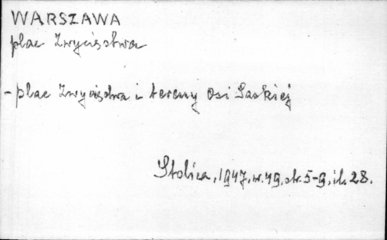 WARSZAWA
plac Zwycięstwa
- plac Zwycięstwa i tereny Osi Saskiej
Stolica, 1947, nr. 49, str. 5-9, il. 28.